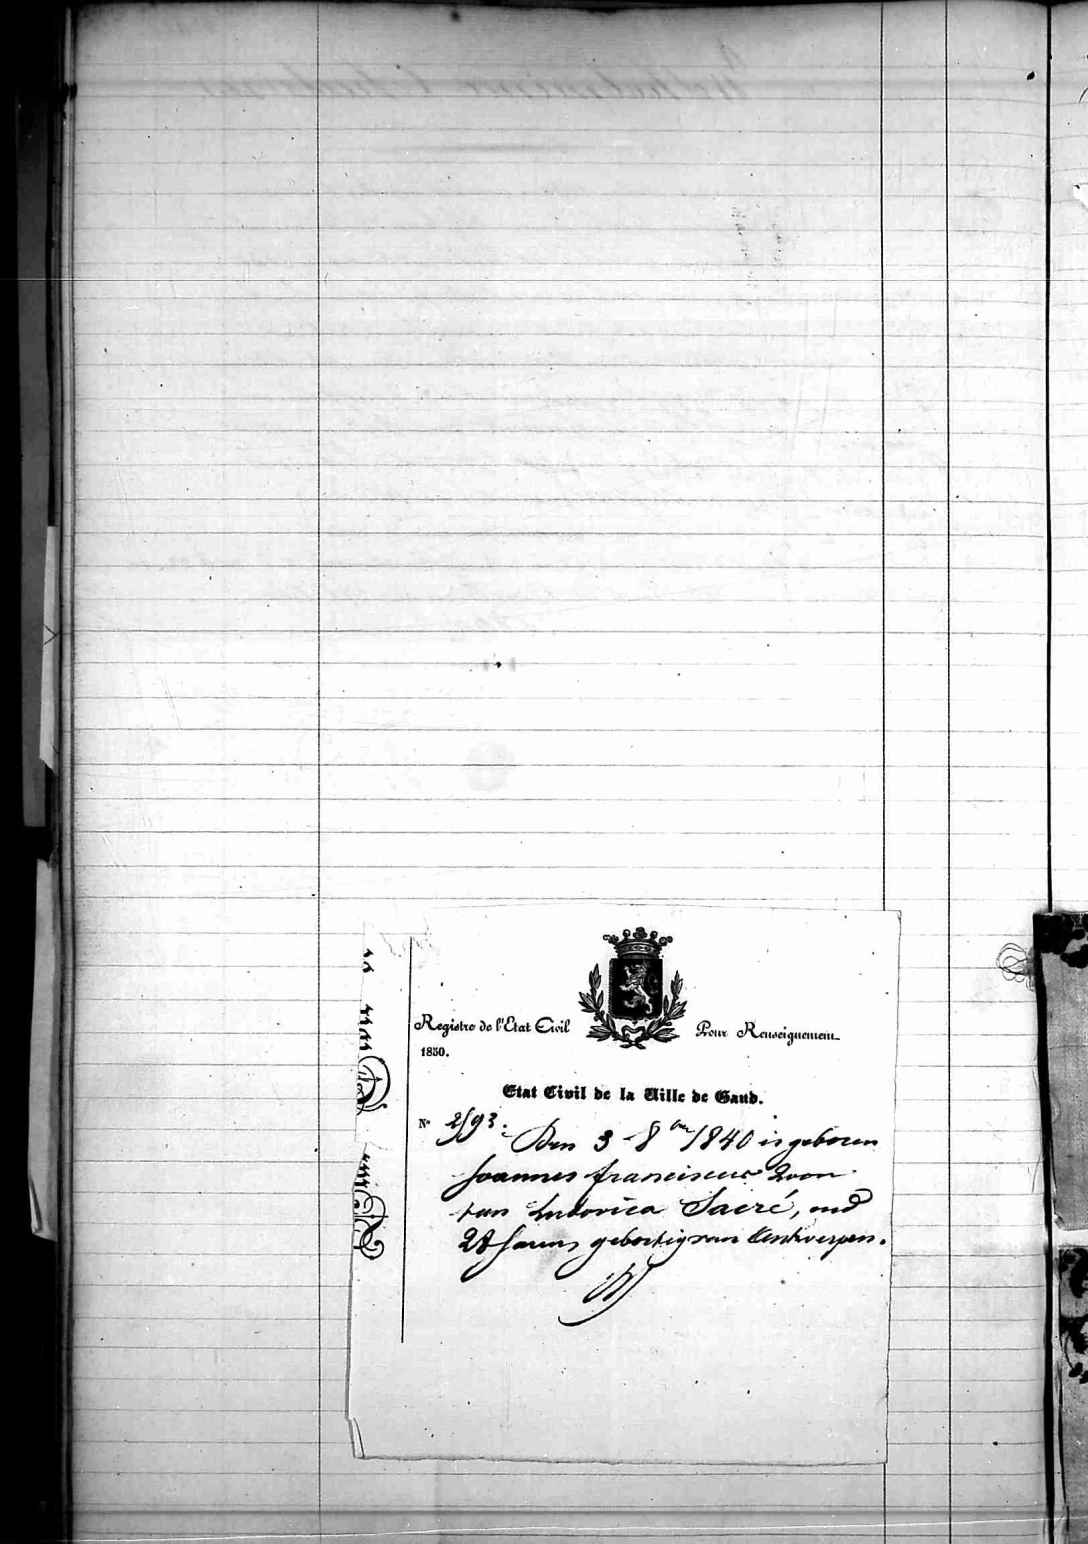 Registre de l'Etat Civil
Pour Renseignement
1850.
Etat Civil de la Ville de Gand.
N° 2193.
Den 3 8bre 1840 is geboren
Joannes franciscus Zoon
van Ludovica Sacré, oud
28 Jaren gebortig van Antwerpen.